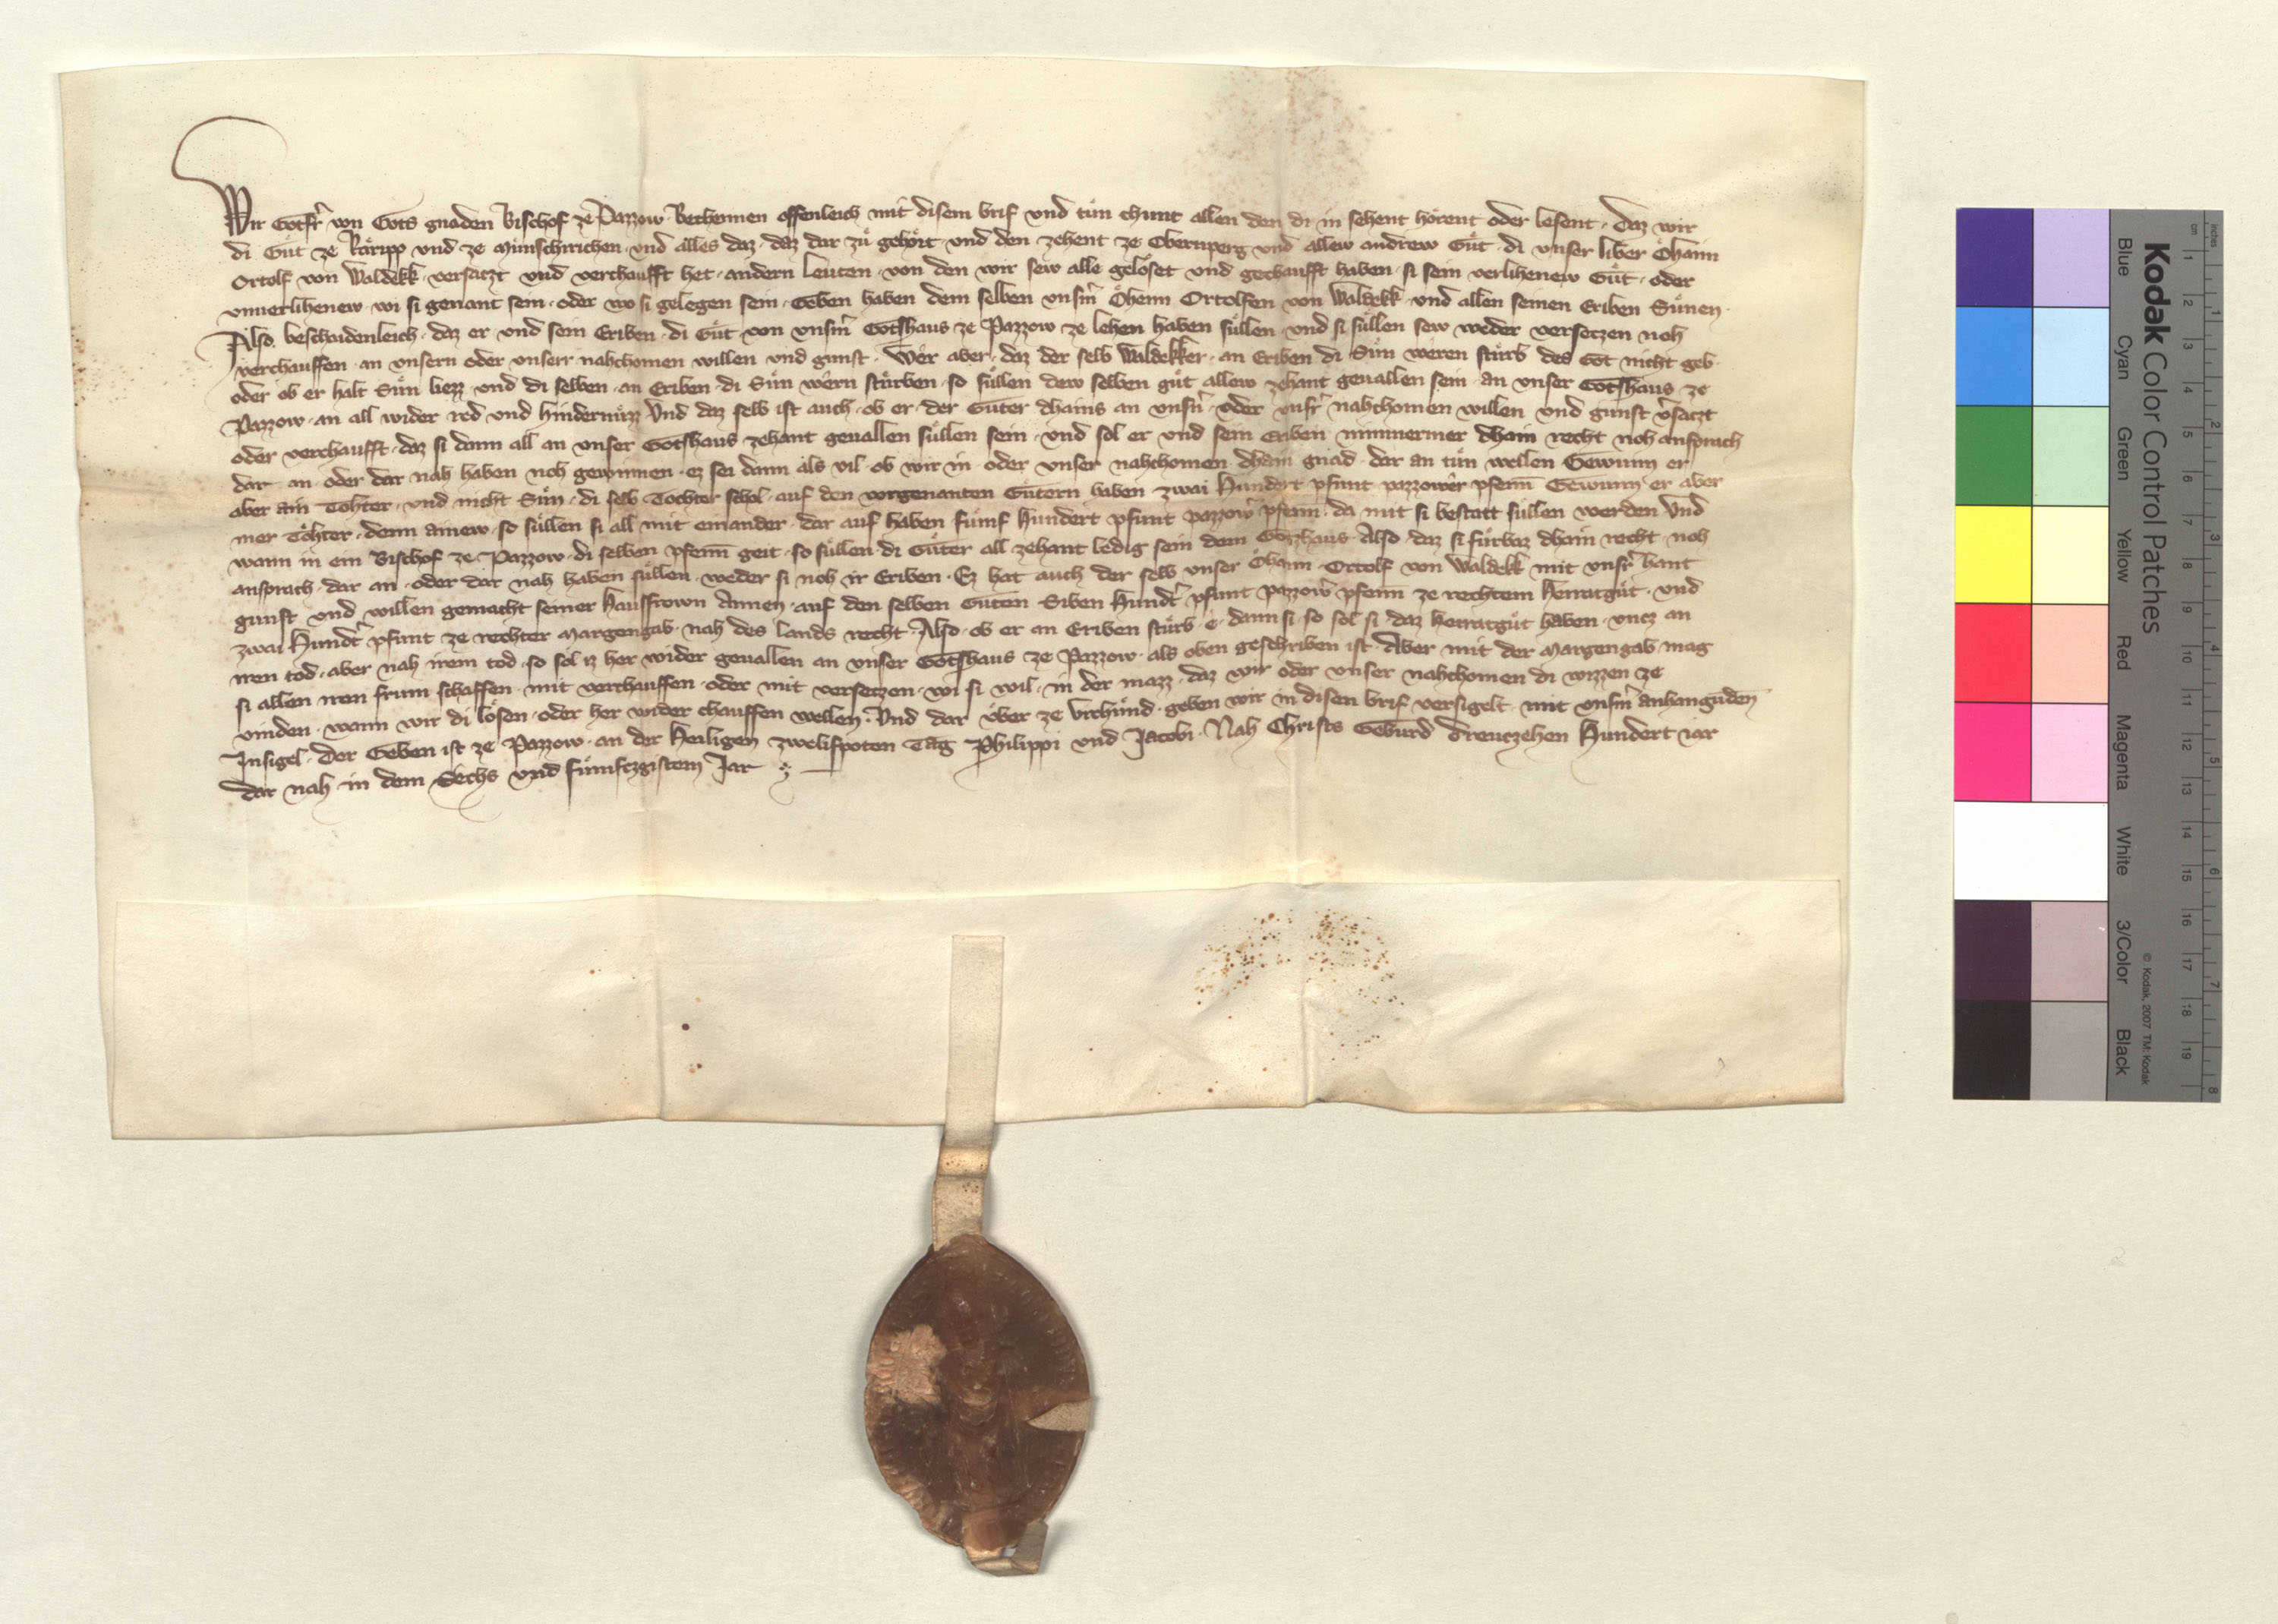 Wir Gotfr̄ von Gots gnaden Bischof ze Pazzow Bechennen offenleich mit disem brif und tůn chunt allen den di in sehent hörent oder lesent · Daz wir
di Gůt ze Rärnpp und ze Minschrichen · und alles daz · daz dar zů gehört · und den zehent ze Obernperg und allew andrew Gůt · di unser liber Öhaim
Ortolf von Waldekk · versaczt und verchaufft het · andern Leuten · von den wir sew alle gelöset und gechaufft haben · si sein verlihenew Gůt · oder
unuerlihenew · wi si genant sein · oder wo si gelegen sein · Geben haben dem selben unsm̄ Öheim Ortolfen von Waldekk · und allen seinen Eriben Sünen ·
Also beschaidenleich · daz er und sein Eriben · di Gůt von unsm̄ Gotshaus ze Pazzow ze lehen haben süllen · und si süllen sew weder versetzen noh
verchauffen · an unsern oder unserr nahchomen willen und gunst · Wer aber · daz der selb Waldekker · an Eriben di Sün weren stürb des Got nicht geb ·
oder ob er halt Sün liezz · und di selben · an Eriben · di Sün wern stürben · so süllen dew selben gůt allew zehant geuallen sein · an unser Gotshaus · ze
Pazzow · an all wider red und hindernüzz Und daz selb ist auch · ob er · der Güter dhains an unsn̄ · oder unsr̄ nahchomen willen und gunst v̄saczt
oder verchaufft · daz si dann all an unser Gotshaus · zehant geuallen süllen sein · und sol er und sein Eriben nimmermer dhain recht noh ansprach
dar · an oder dar nah haben noh gewinnen · ez sei dann als vil · ob wir in oder unser nahchomen · dhain gnad · dar an tůn wellen Gewunn er
aber ain Tohter · und nicht Sün · di selb Tochter schol · auf den vorgenanten Gütern haben zwai Hundert pfunt pazzower pfenn̄ Gewunn er aber
mer Töhter · denn ainew · so süllen si all mit einander · dar auf haben fümf Hundert pfunt pazzow̄ pfenn̄ · da mit si bestatt süllen werden Und
wann in ein Bischof ze Pazzow · di selben pfenn̄ geit · so süllen di Güter all zehant ledig sein dem Gozhaus Also · daz si fürbaz dhain recht · noh
ansprach · dar an · oder dar nah haben süllen · weder si noh ir Eriben · Ez hat auch der selb unser Öhaim · Ortolf von Waldekk mit unsr̄ hant
gunst und willen gemacht seiner Hausfrown Annen · auf den selben Güten Siben Hundt̄ pfunt pazzow̄ pfenn̄ ze rechtem Heiratgůt · und
zwai Hundt̄ pfunt ze rechter Margengab · nah des Lands recht Also · ob er an Eriben stürb e · dann si · so sol si · daz heiratgůt haben · uncz an
iren tod · aber nah irem tod · so sol iz her wider geuallen an unser Gotshaus ze Pazzow · als oben geschriben ist Aber mit der Margengab mag
si allen iren frum schaffen · mit verchauffen · oder mit versetzen · wi si wil · in der mazz · daz wir oder unser nahchomen di wizzen ze
vinden · wann wir di lösen · oder her wider chauffen wellen · Und dar über ze Urchünd · geben wir in disen brif versigelt · mit unsm̄ anhangunden
Insigel · Der Geben ist ze Pazzow · an der Heiligen zwelifpoten Tag Philippi und Jacobi · Nah Christs Geburd Dreuczehen Hundert iar
dar nah in dem Sechs und fümfczgistem Jar
Kodak Color Control Patches
Blue Cyan Green Yellow Red Magenta White 3/Color Black
© Kodak, 2007 TM: Kodak
cm 1 2 3 4 5 6 7 8 9 10 11 12 13 14 15 16 17 18 19
inches 1 2 3 4 5 6 7 8